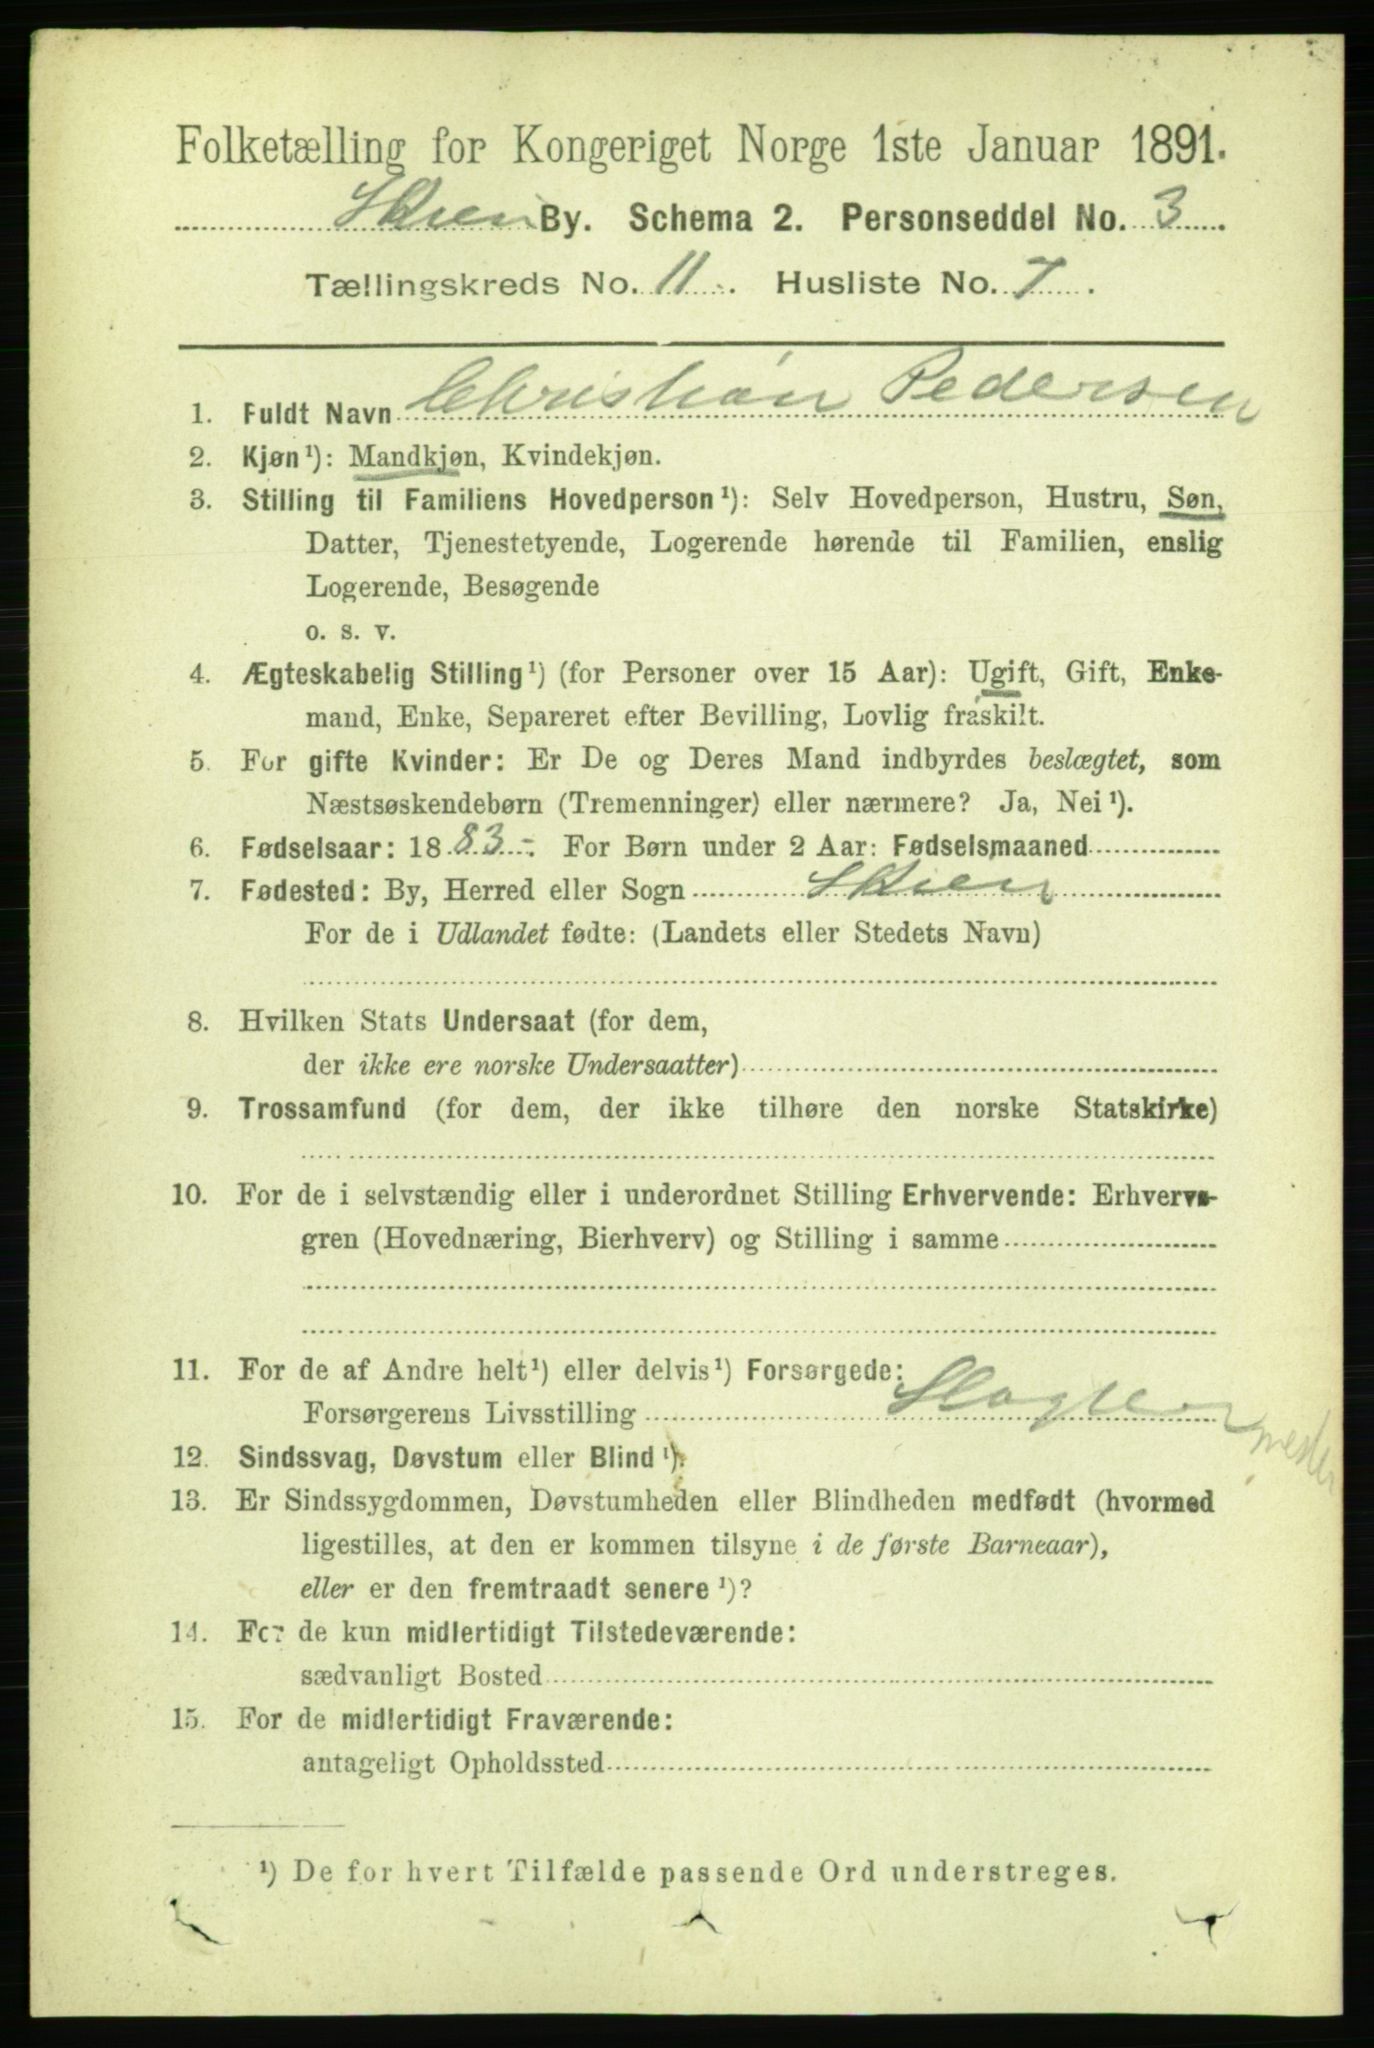 Folketælling for Kongeriget Norge 1ste Januar 1891.
Skien By. Schema 2. Personseddel No. 3.
Tællingskreds No. 11. Husliste No. 7.
1. Fuldt Navn Christian Pedersen
2. Kjøn¹): Mandkjøn, Kvindekjøn.
3. Stilling til Familiens Hovedperson¹): Selv Hovedperson, Hustru, Søn,
Datter, Tjenestetyende, Logerende hørende til Familien, enslig
Logerende, Besøgende
o. s. v.
4. Ægteskabelig Stilling¹) (for Personer over 15 Aar): Ugift, Gift, Enke-
mand, Enke, Separeret efter Bevilling, Lovlig fraskilt.
5. For gifte Kvinder: Er De og Deres Mand indbyrdes beslægtet, som
Næstsøskendebørn (Tremenninger) eller nærmere? Ja, Nei¹).
6. Fødselsaar: 1883. For Børn under 2 Aar: Fødselsmaaned
7. Fødested: By, Herred eller Sogn Skien
For de i Udlandet fødte: (Landets eller Stedets Navn)
8. Hvilken Stats Undersaat (for dem,
der ikke ere norske Undersaatter)
9. Trossamfund (for dem, der ikke tilhøre den norske Statskirke)
10. For de i selvstændig eller i underordnet Stilling Erhvervende: Erhvervs-
gren (Hovednæring, Bierhverv) og Stilling i samme
11. For de af Andre helt¹) eller delvis¹) Forsørgede:
Forsørgerens Livsstilling Slagter
mester
12. Sindssvag, Døvstum eller Blind¹).
13. Er Sindssygdommen, Døvstumheden eller Blindheden medfødt (hvormed
ligestilles, at den er kommen tilsyne i de første Barneaar),
eller er den fremtraadt senere¹)?
14. For de kun midlertidigt Tilstedeværende:
sædvanligt Bosted
15. For de midlertidigt Fraværende:
antageligt Opholdssted
¹) De for hvert Tilfælde passende Ord understreges.